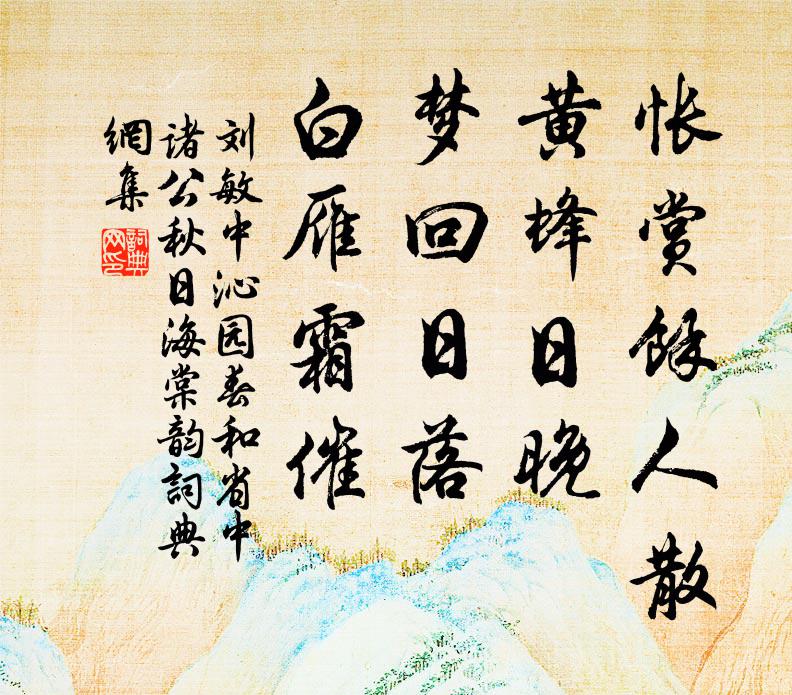 怅赏馀人散
黄蜂日晚
梦回日落
白雁霜催
刘敏中沁园春和省中
诸公秋日海棠韵詞典
網集
詞典
网印